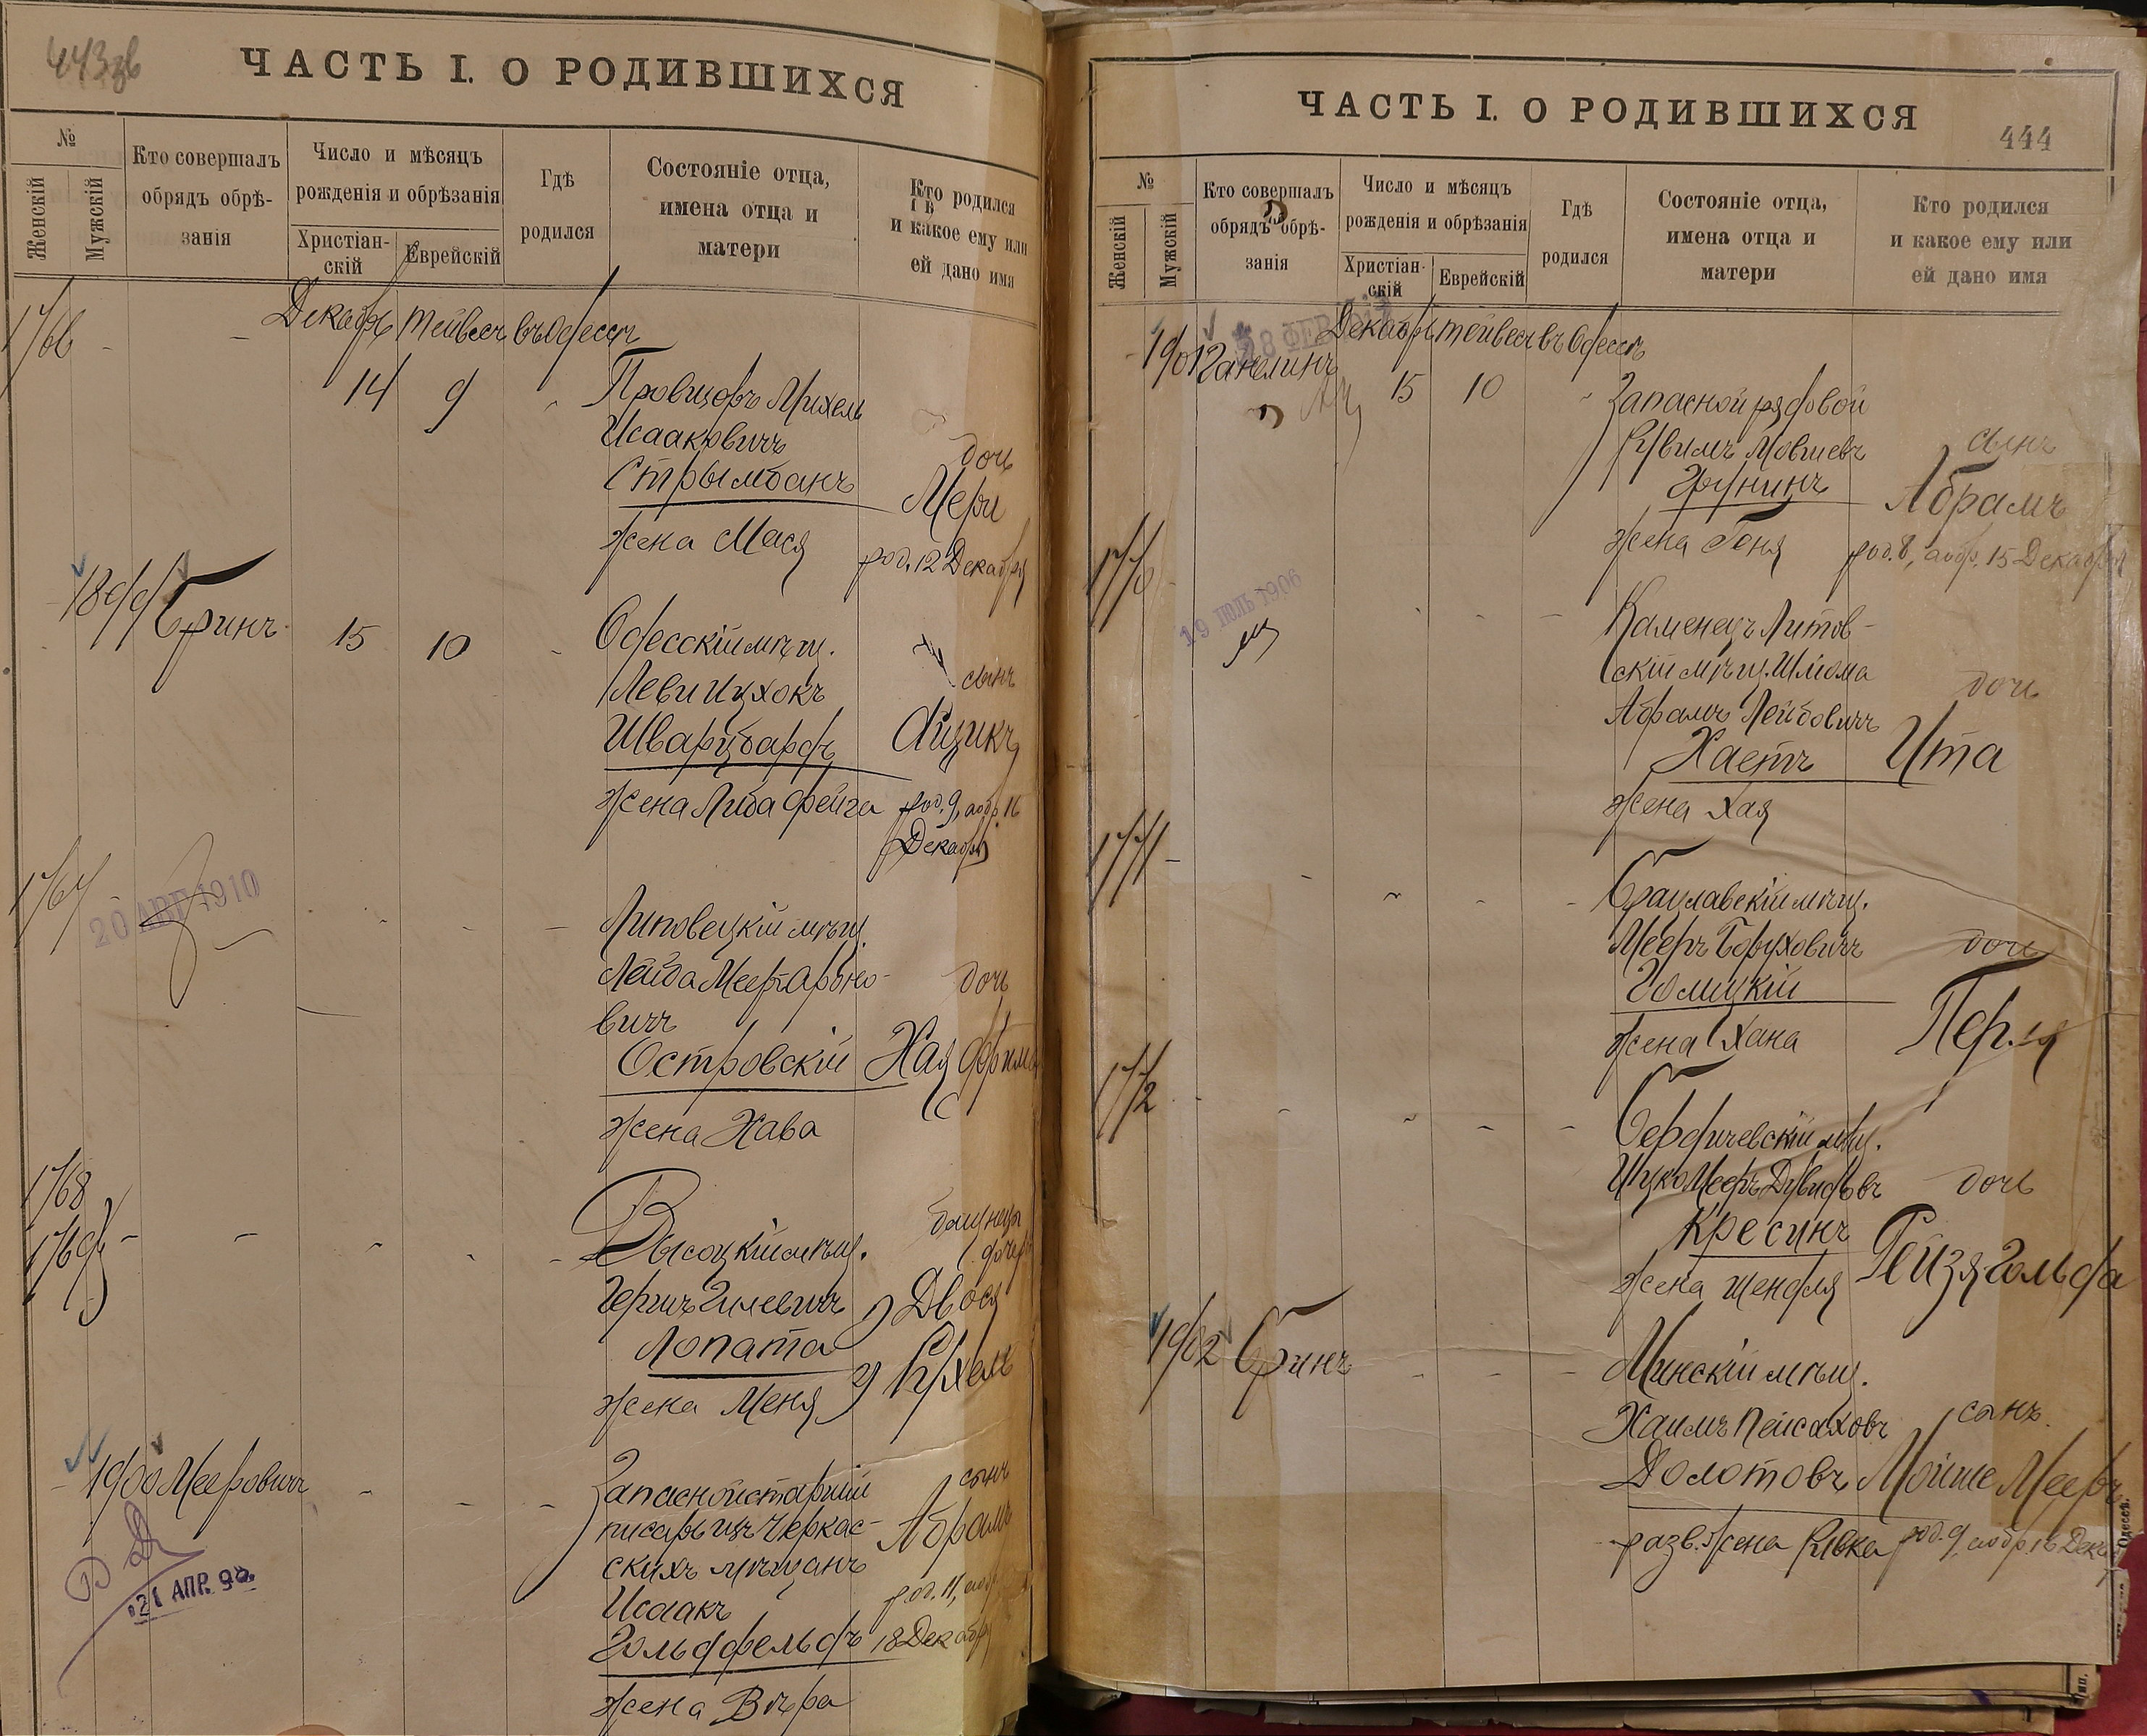 443 зв
ЧАСТЬ I. О РОДИВШИХСЯ
№
Женскій
Мужскій
Кто совершалъ
обрядъ обрѣ-
занія
Число и мѣсяцъ
рожденія и обрѣзанія
Христіан-
скій
Еврейскій
Гдѣ
родился
Состояніе отца,
имена отца и
матери
Кто родился
и какое ему или
ей дано имя
1766
Декабрь Тейвесъ въ Одессѣ
14 9
Михель
Исааковичъ
Стрымбанъ
жена Мася
дочь
Мери
род. 12 Декабря
1899 Гринъ
15 10
Одесскій мѣщ.
Леви Ицхокъ
Шварцбардъ
жена Либа Фейга
сынъ
Айзикъ
род. 9, 16
Декабря
1767
20 АВГ 1910
Липовецкій мѣщ.
Лейба Мееръ Ароно-
вичъ
Островскій
жена Хава
дочь
Хая
1768
1769
Высоцкій мѣщ.
Гершъ Гилевичъ
Лопата
жена Меня
близнецы
Двося
Рухель
1900 Мееровичъ
21 АПР. 98
Запасной старшій
писарь изъ Черкас-
скихъ мѣщанъ
Исаакъ
Гольдфельдъ
жена Вѣра
сынъ
Абрамъ
род. 11,
18 Декабря
ЧАСТЬ I. О РОДИВШИХСЯ
444
№
Женскій
Мужскій
Кто совершалъ
обрядъ обрѣ-
занія
Число и мѣсяцъ
рожденія и обрѣзанія
Христіан-
скій
Еврейскій
Гдѣ
родился
Состояніе отца,
имена отца и
матери
Кто родился
и какое ему или
ей дано имя
1901 Ганелинъ
Декабрь Тейвесъ въ Одессѣ
15 10
Запасной рядовой
Рувимъ Мовшевъ
Грунинъ
жена Геня
сынъ
Абрамъ
род. 8, 15 Декабря
1770
19 ІЮЛЬ 1906
Каменецъ Литов-
скій мѣщ. Шлома
Абрамъ Лейбовичъ
Хаетъ
жена Хая
дочь
Ита
1771
Брацлавскій мѣщ.
Мееръ Боруховичъ
Голицкій
жена Хана
дочь
Перля
1772
Бердичевскій мѣщ.
Ицко Мееръ Дувидовъ
Кресинъ
жена Шендля
дочь
Рейзя Гольда
1902 Гринъ
Минскій мѣщ.
Хаимъ Пейсаховъ
Долотовъ
разв. жена Ривка
сынъ
Мойше Мееръ
род. 9, 16 Дек